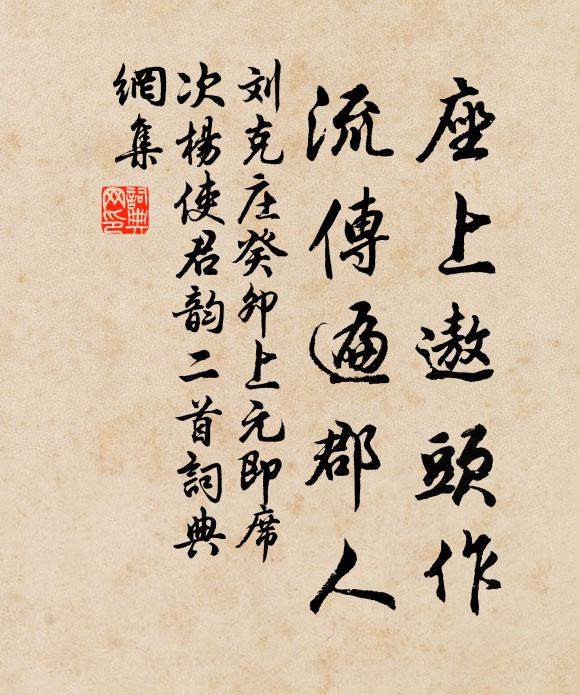 座上遨頭作
流傳遍郡人
刘克庄癸卯上元即席
次楊使君韵二首詞典
網集
詞典
网印